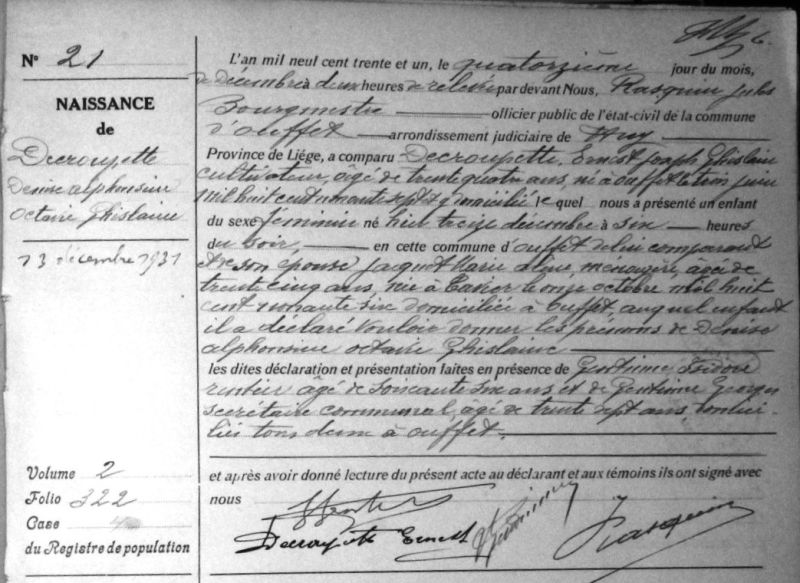 N° 21
NAISSANCE
de
Decroupette
Denise alphonsine
octavie Ghislaine
13 décembre 1931
Volume 2
Folio 322
Case
du Registre de population
L'an mil neuf cent trente et un, le quatorzième jour du mois,
de décembre à deux heures de relevée par devant Nous, Rasquin Jules
Bourgmestre officier public de l'état-civil de la commune
d'ouffet arrondissement judiciaire de Huy
Province de Liége, a comparu Decroupette, Ernest Joseph Ghislain
cultivateur, âgé de trente quatre ans, né à ouffet le trois juin
mil huit cent nonante sept y domicilié lequel nous a présenté un enfant
du sexe féminin né hier treize décembre à six heures
du soir, en cette commune d'ouffet de lui comparant
et de son épouse Jacquet Marie ménagère, âgée de
trente cinq ans, née à le onze octobre mil huit
cent nonante six domiciliée à ouffet auquel enfant
il a déclaré vouloir donner les prénoms de Denise
alphonsine octavie Ghislaine
les dites déclaration et présentation faites en présence de Isidore
rentier âgé de soixante six ans et de Georges
secrétaire communal, âgé de trente sept ans, domici-
liés tous deux à ouffet.
et après avoir donné lecture du présent acte au déclarant et aux témoins ils ont signé avec
nous
Decroupette Ernest
Rasquin